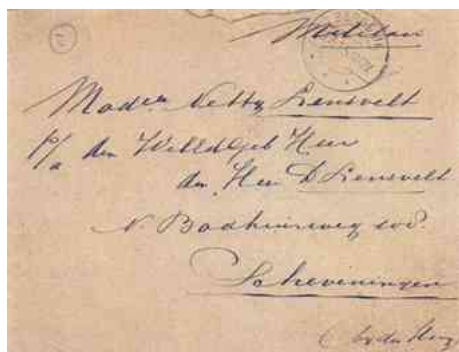 Mad^en Netty Liensvelt
p/a den WelEdGeb Heer
den Heer D Liensvelt
N. Badhuisweg
Scheveningen